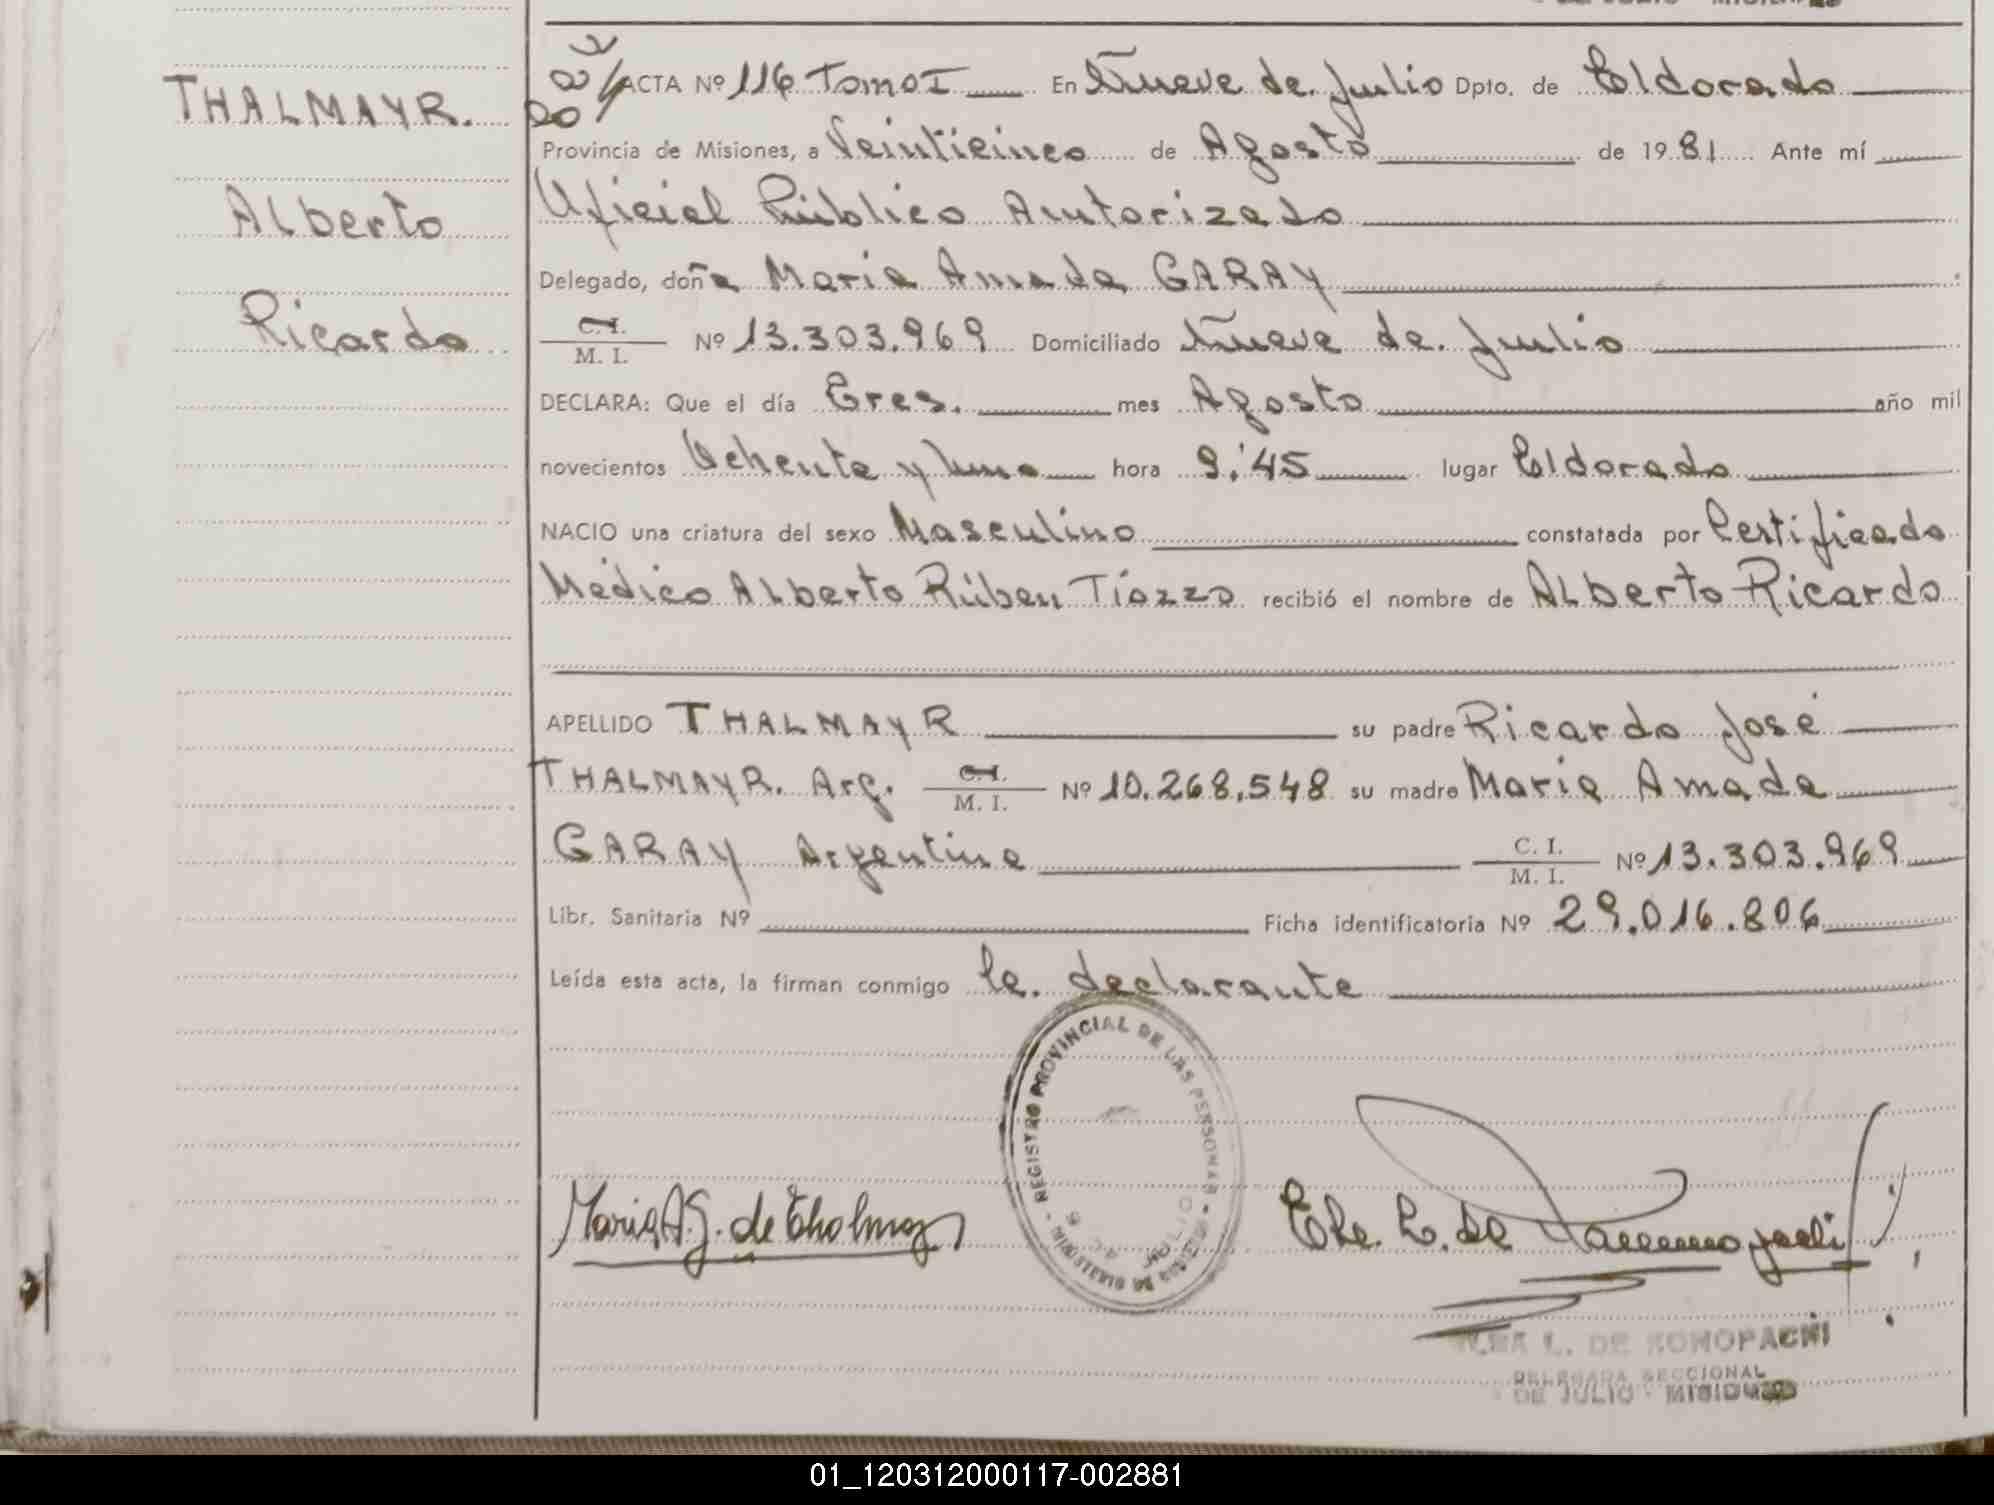 THALMAYR.
Alberto
Ricardo
ACTA Nº 116 Tomo I En Nueve de Julio Dpto. de Eldorado
Provincia de Misiones, a Veinticinco de Agosto de 1981 Ante mí
Oficial Público Autorizado
Delegado, doña Maria Amada GARAY
C. I.
M. I. Nº 13.303.969 Domiciliado Nueve de Julio
DECLARA: Que el día Tres. mes Agosto año mil
novecientos Ochenta y Uno hora 9:45 lugar Eldorado
NACIO una criatura del sexo Masculino constatada por Certificado
Médico Alberto Rúben Tiozzo recibió el nombre de Alberto Ricardo
APELLIDO THALMAYR su padre Ricardo José
THALMAYR. Arg. C. I. M. I. Nº 10.268.548 su madre Maria Amada
GARAY Argentina C. I. M. I. Nº 13.303.969
Libr. Sanitaria Nº Ficha identificatoria Nº 29.016.806
Leída esta acta, la firman conmigo la declarante
REGISTRO PROVINCIAL DE LAS PERSONAS
JULIO
Maria A. G. de Thalmayr
L. DE KONOPACKI
DELEGADA SECCIONAL
DE JULIO - MISIONES
01_120312000117-002881